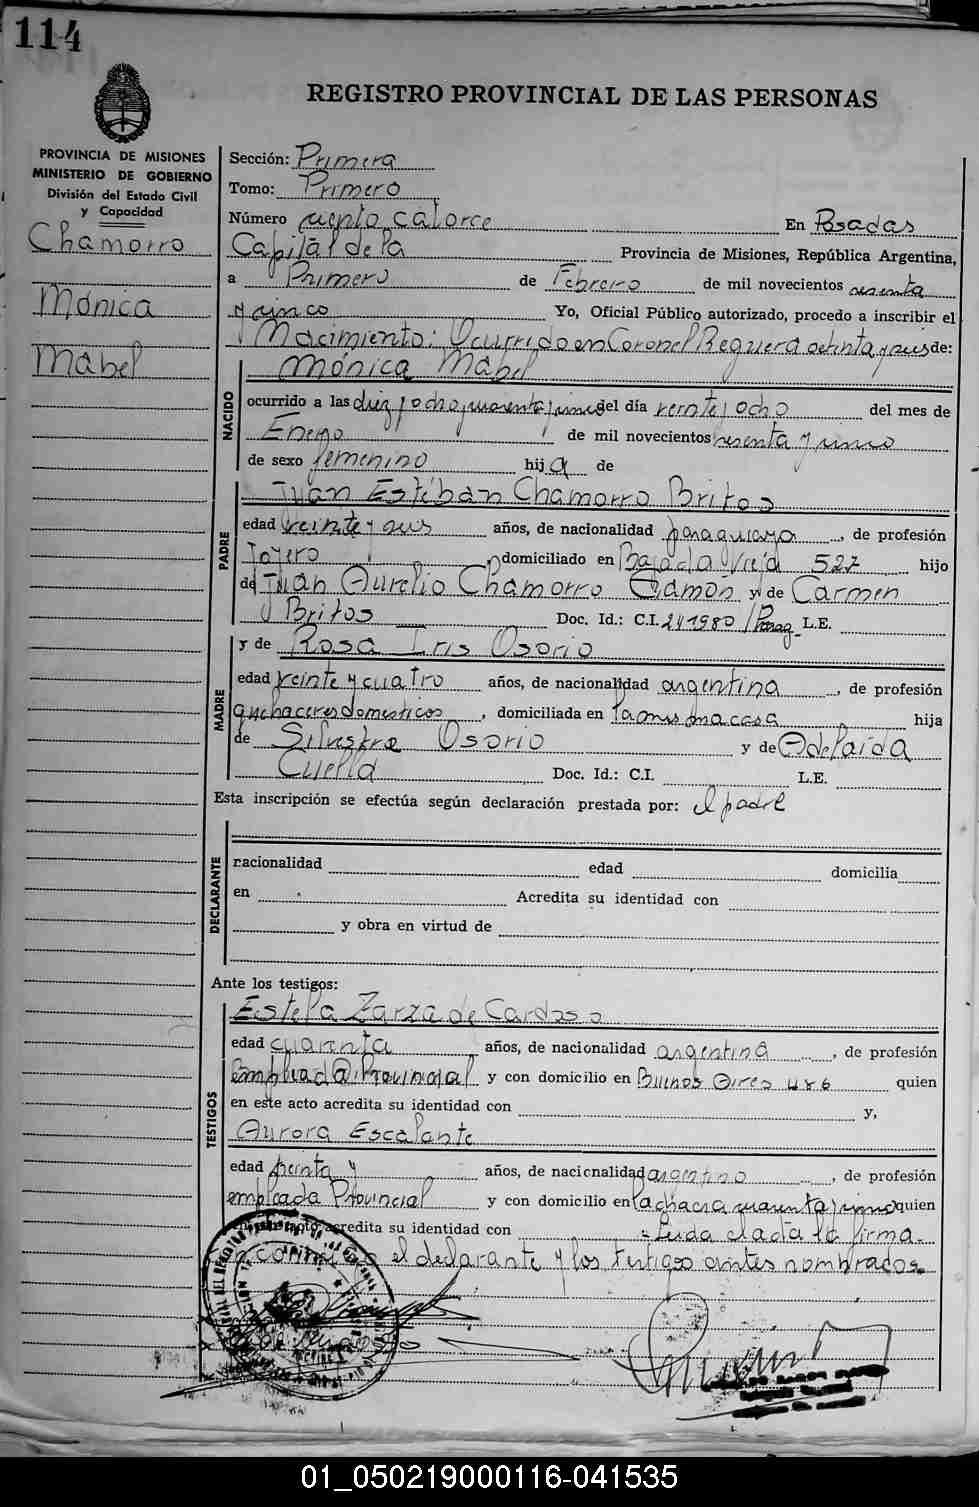 114
REGISTRO PROVINCIAL DE LAS PERSONAS
PROVINCIA DE MISIONES
MINISTERIO DE GOBIERNO
División del Estado Civil
y Capacidad
Chamorro
Mónica
Mabel
Sección: Primera
Tomo: Primero
Número ciento catorce En Posadas
Capital de la Provincia de Misiones, República Argentina,
a Primero de Febrero de mil novecientos sesenta
y cinco Yo, Oficial Público autorizado, procedo a inscribir el
Nacimiento: Ocurrido en Coronel Reguera ochenta y seis de:
Mónica Mabel
NACIDO
ocurrido a las diez y ocho y cuarenta y cinco del día veinte y ocho del mes de
Enero de mil novecientos sesenta y cinco
de sexo femenino hija de
Juan Estéban Chamorro Britos
PADRE
edad veinte y seis años, de nacionalidad paraguaya, de profesión
Joyero domiciliado en Bajada Vieja 527 hijo
de Juan Aurelio Chamorro Gamón y de Carmen
Britos Doc. Id.: C.I. 241980/Parag L.E.
y de Rosa Iris Osorio
MADRE
edad veinte y cuatro años, de nacionalidad argentina, de profesión
quehaceres domesticos, domiciliada en la misma casa hija
de Silvestre Osorio y de Adelaida
Cuella Doc. Id.: C.I. L.E.
Esta inscripción se efectúa según declaración prestada por: el padre
DECLARANTE
nacionalidad edad domicilia
en Acredita su identidad con
y obra en virtud de
Ante los testigos:
TESTIGOS
Estela Zarza de Cardoso
edad cuarenta años, de nacionalidad argentina, de profesión
Empleada Provincial y con domicilio en Buenos Aires 486 quien
en este acto acredita su identidad con y,
Aurora Escalante
edad treinta y años, de nacionalidad argentina, de profesión
empleada Provincial y con domicilio en la chacra cuarenta y cinco quien
en este acto acredita su identidad con Leida el acta la firma
el declarante y los testigos antes nombrados.
01_050219000116-041535